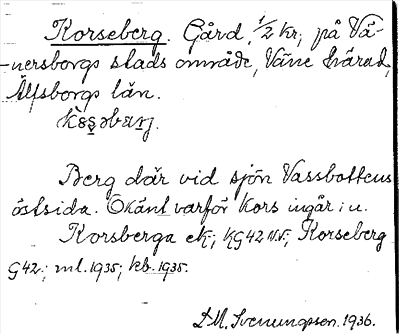 Korseberg. Gård, 1/2 kr, på Vä-
nersborgs stads område, Väne härad,
Älfsborgs län.
Berg där vid sjön Vassbottens
östsida. Okänt varför Kors ingår i n.
Korsberga ek; KG42 N.V.; Korseberg
G42.; ml. 1935; kb. 1935.
D.M. Svenungsson. 1936.